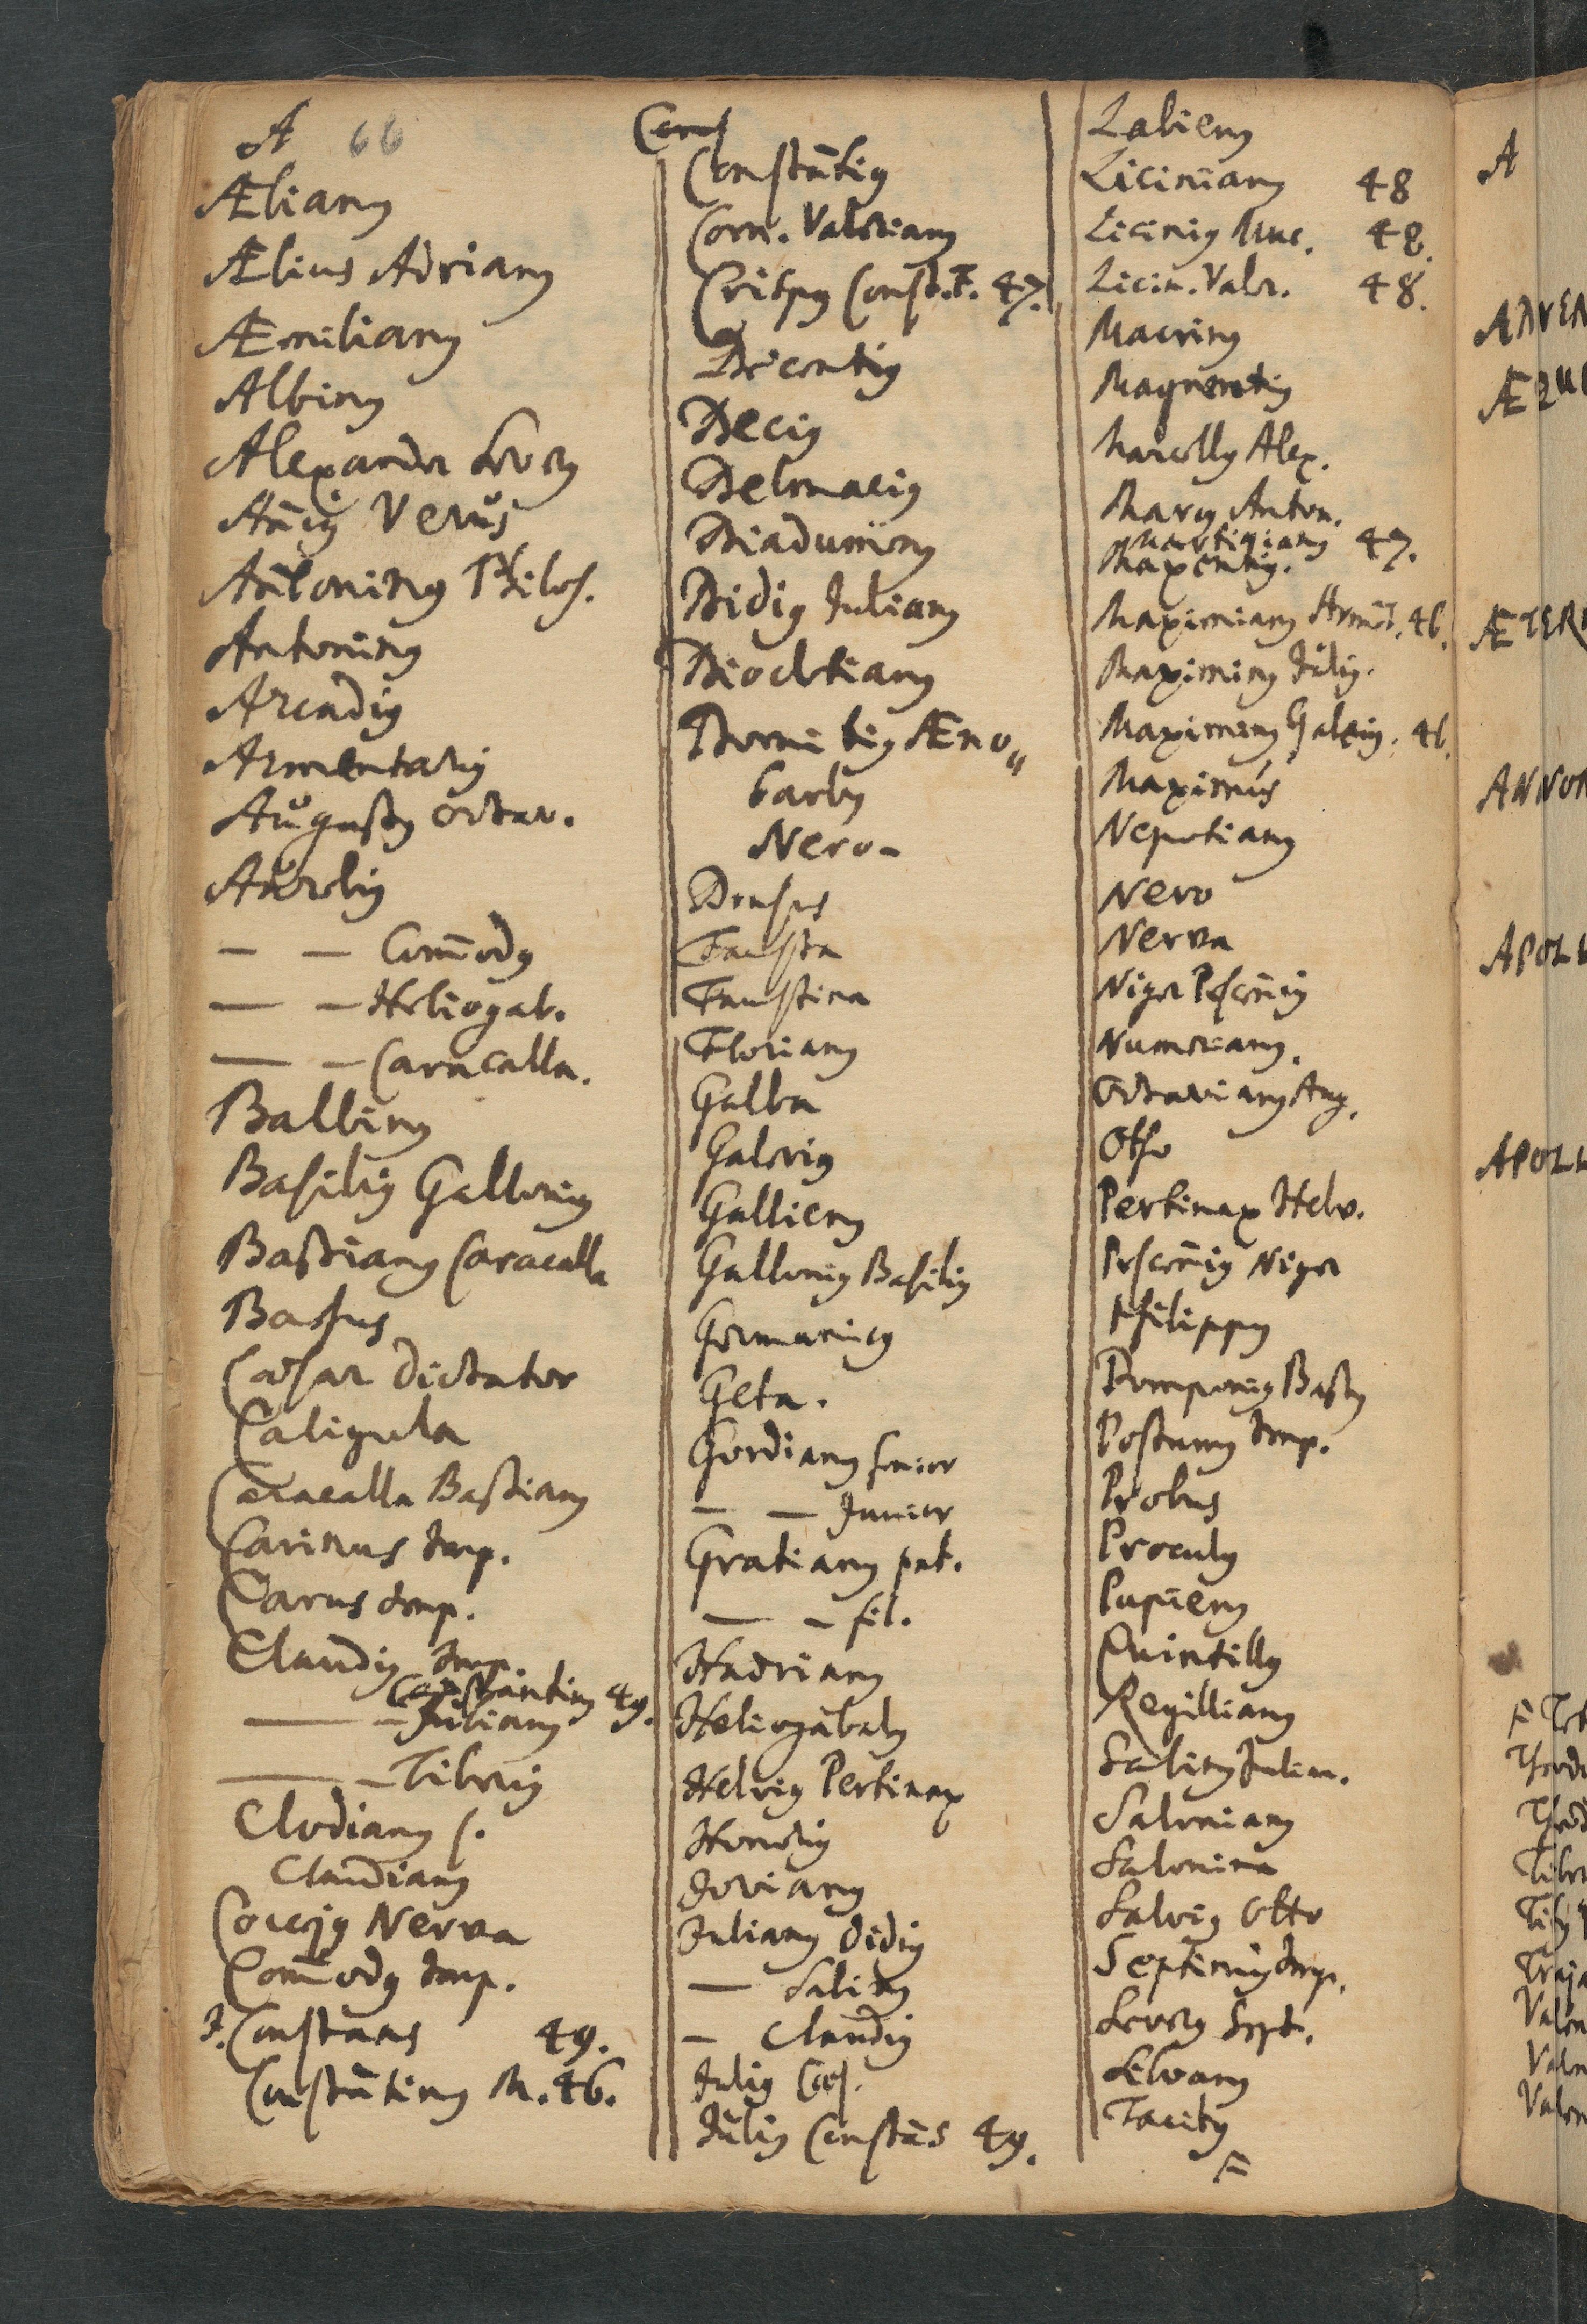 A 66
Ælianꝰ
Ælius Adrianꝰ
Æmilianꝰ
Albinꝰ
Alexander Severꝰ
Añiꝰ Verus
Antoninꝰ Philos.
Antoninꝰ
Arcadiꝰ
Armentariꝰ
Augustꝰ Octav.
Aureliꝰ
— — Com̄odꝰ
— — Heliogab.
— — Caracalla.
Balbinꝰ
Basiliꝰ Galloniꝰ
Bassianꝰ Caracalla
Bassus
Cæsar Dictator
Caligula
Caracalla Bassianꝰ
Carinus Imp.
Carus Imp.
Claudiꝰ Imp.
Constantinꝰ 49.
— — Julianꝰ
— — Tiberiꝰ
Clodianꝰ s.
Claudianꝰ
Coccejꝰ Nerva
Com̄odꝰ Imp.
J. Constans 49.
Constātinꝰ M. 46.
Cons
Constātiꝰ
Corn. Valerianꝰ
Crispꝰ Const. F. 47.
Decentiꝰ
Deciꝰ
Delmaciꝰ
Diadumenꝰ
Didiꝰ Julianꝰ
Diocletianꝰ
Domitiꝰ Æno〟
barbꝰ
Nero-
Drusus
Fausta
Faustina
Florianꝰ
Galba
Galeriꝰ
Gallienꝰ
Galloniꝰ Basiliꝰ
Germanicꝰ
Geta.
Gordianꝰ senior
— — Junior
Gratianꝰ pat.
— — fil.
Hadrianꝰ
Heliogabalꝰ
Helviꝰ Pertinax
Honoriꝰ
Jovianꝰ
Julianꝰ Didiꝰ
— Salinꝰ
— Claudiꝰ
Juliꝰ Cæs.
Juliꝰ Constās 49.
Labienꝰ
Licinianꝰ 48
Liciniꝰ Muc. 48.
Licin. Valer. 48.
Macrinꝰ
Magnentiꝰ
Marcellꝰ Alex.
Marcꝰ Anton.
Martinianꝰ 47.
Maxentiꝰ.
Maximianꝰ Arment. 46.
Maximinꝰ Juliꝰ.
Maximinꝰ Galeriꝰ. 46.
Maximus
Nepotianꝰ
Nero
Nerva
Niger Pescēniꝰ
Numerianꝰ.
Octavianꝰ Aug.
Otho
Pertinax Helv.
Pescēniꝰ Niger
Philippꝰ
Pomponiꝰ Bassꝰ
Postumꝰ Imp.
Probus
Proculꝰ
Pupienꝰ
Quintillꝰ
Regillianꝰ
Salinꝰ Julian.
Salonianꝰ
Salonina
Salviꝰ Otto
Septimiꝰ Imp.
Severꝰ Sept.
Silvanꝰ
Tacitꝰ
F
A
ADVEN
ÆQUI
ÆTERN
ANNON
APOLL
APOLL
F